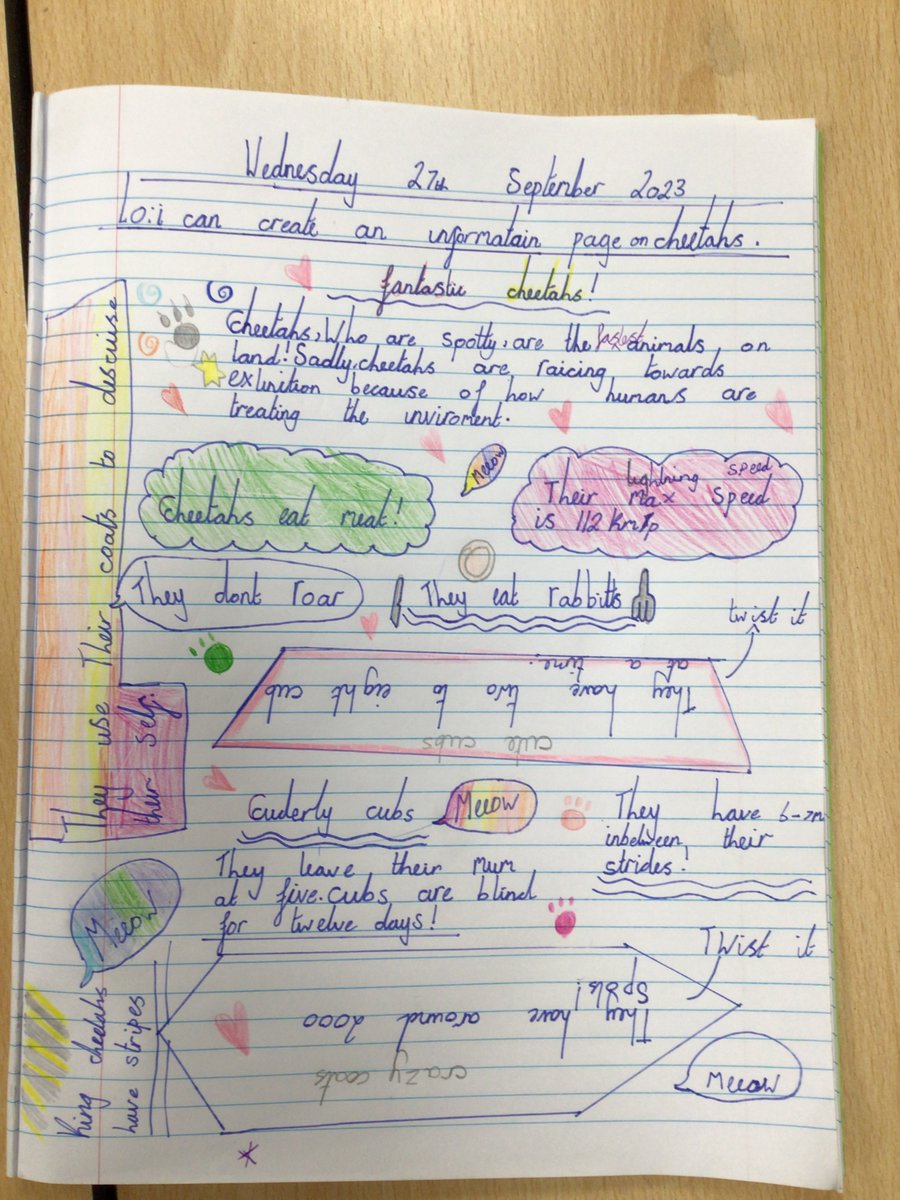 Wednesday 27th September 2023
L.O: i can create an informatain page on cheetahs.
fantastic cheetahs!
Cheetahs, Who are spotty, are the fastest animals on
land! Sadly, cheetahs are raicing towards
extinition because of how humans are
treating the inviroment.
Meeow
Cheetahs eat meat!
lightning speed
Their max speed
is 112 Kmp
They dont roar
They eat rabbitts
twist it
cute cubs
They have two to eight cub
at a time.
They use Their coats to discuise
their self.
Cuderly cubs
Meeow
They leave their mum
at five. Cubs are blind
for twelve days!
They have 6-7m
inbetween their
strides!
Meeow
King cheetahs
have stripes
Twist it
crazy coats
They have around 2000
Spots!
Meeow